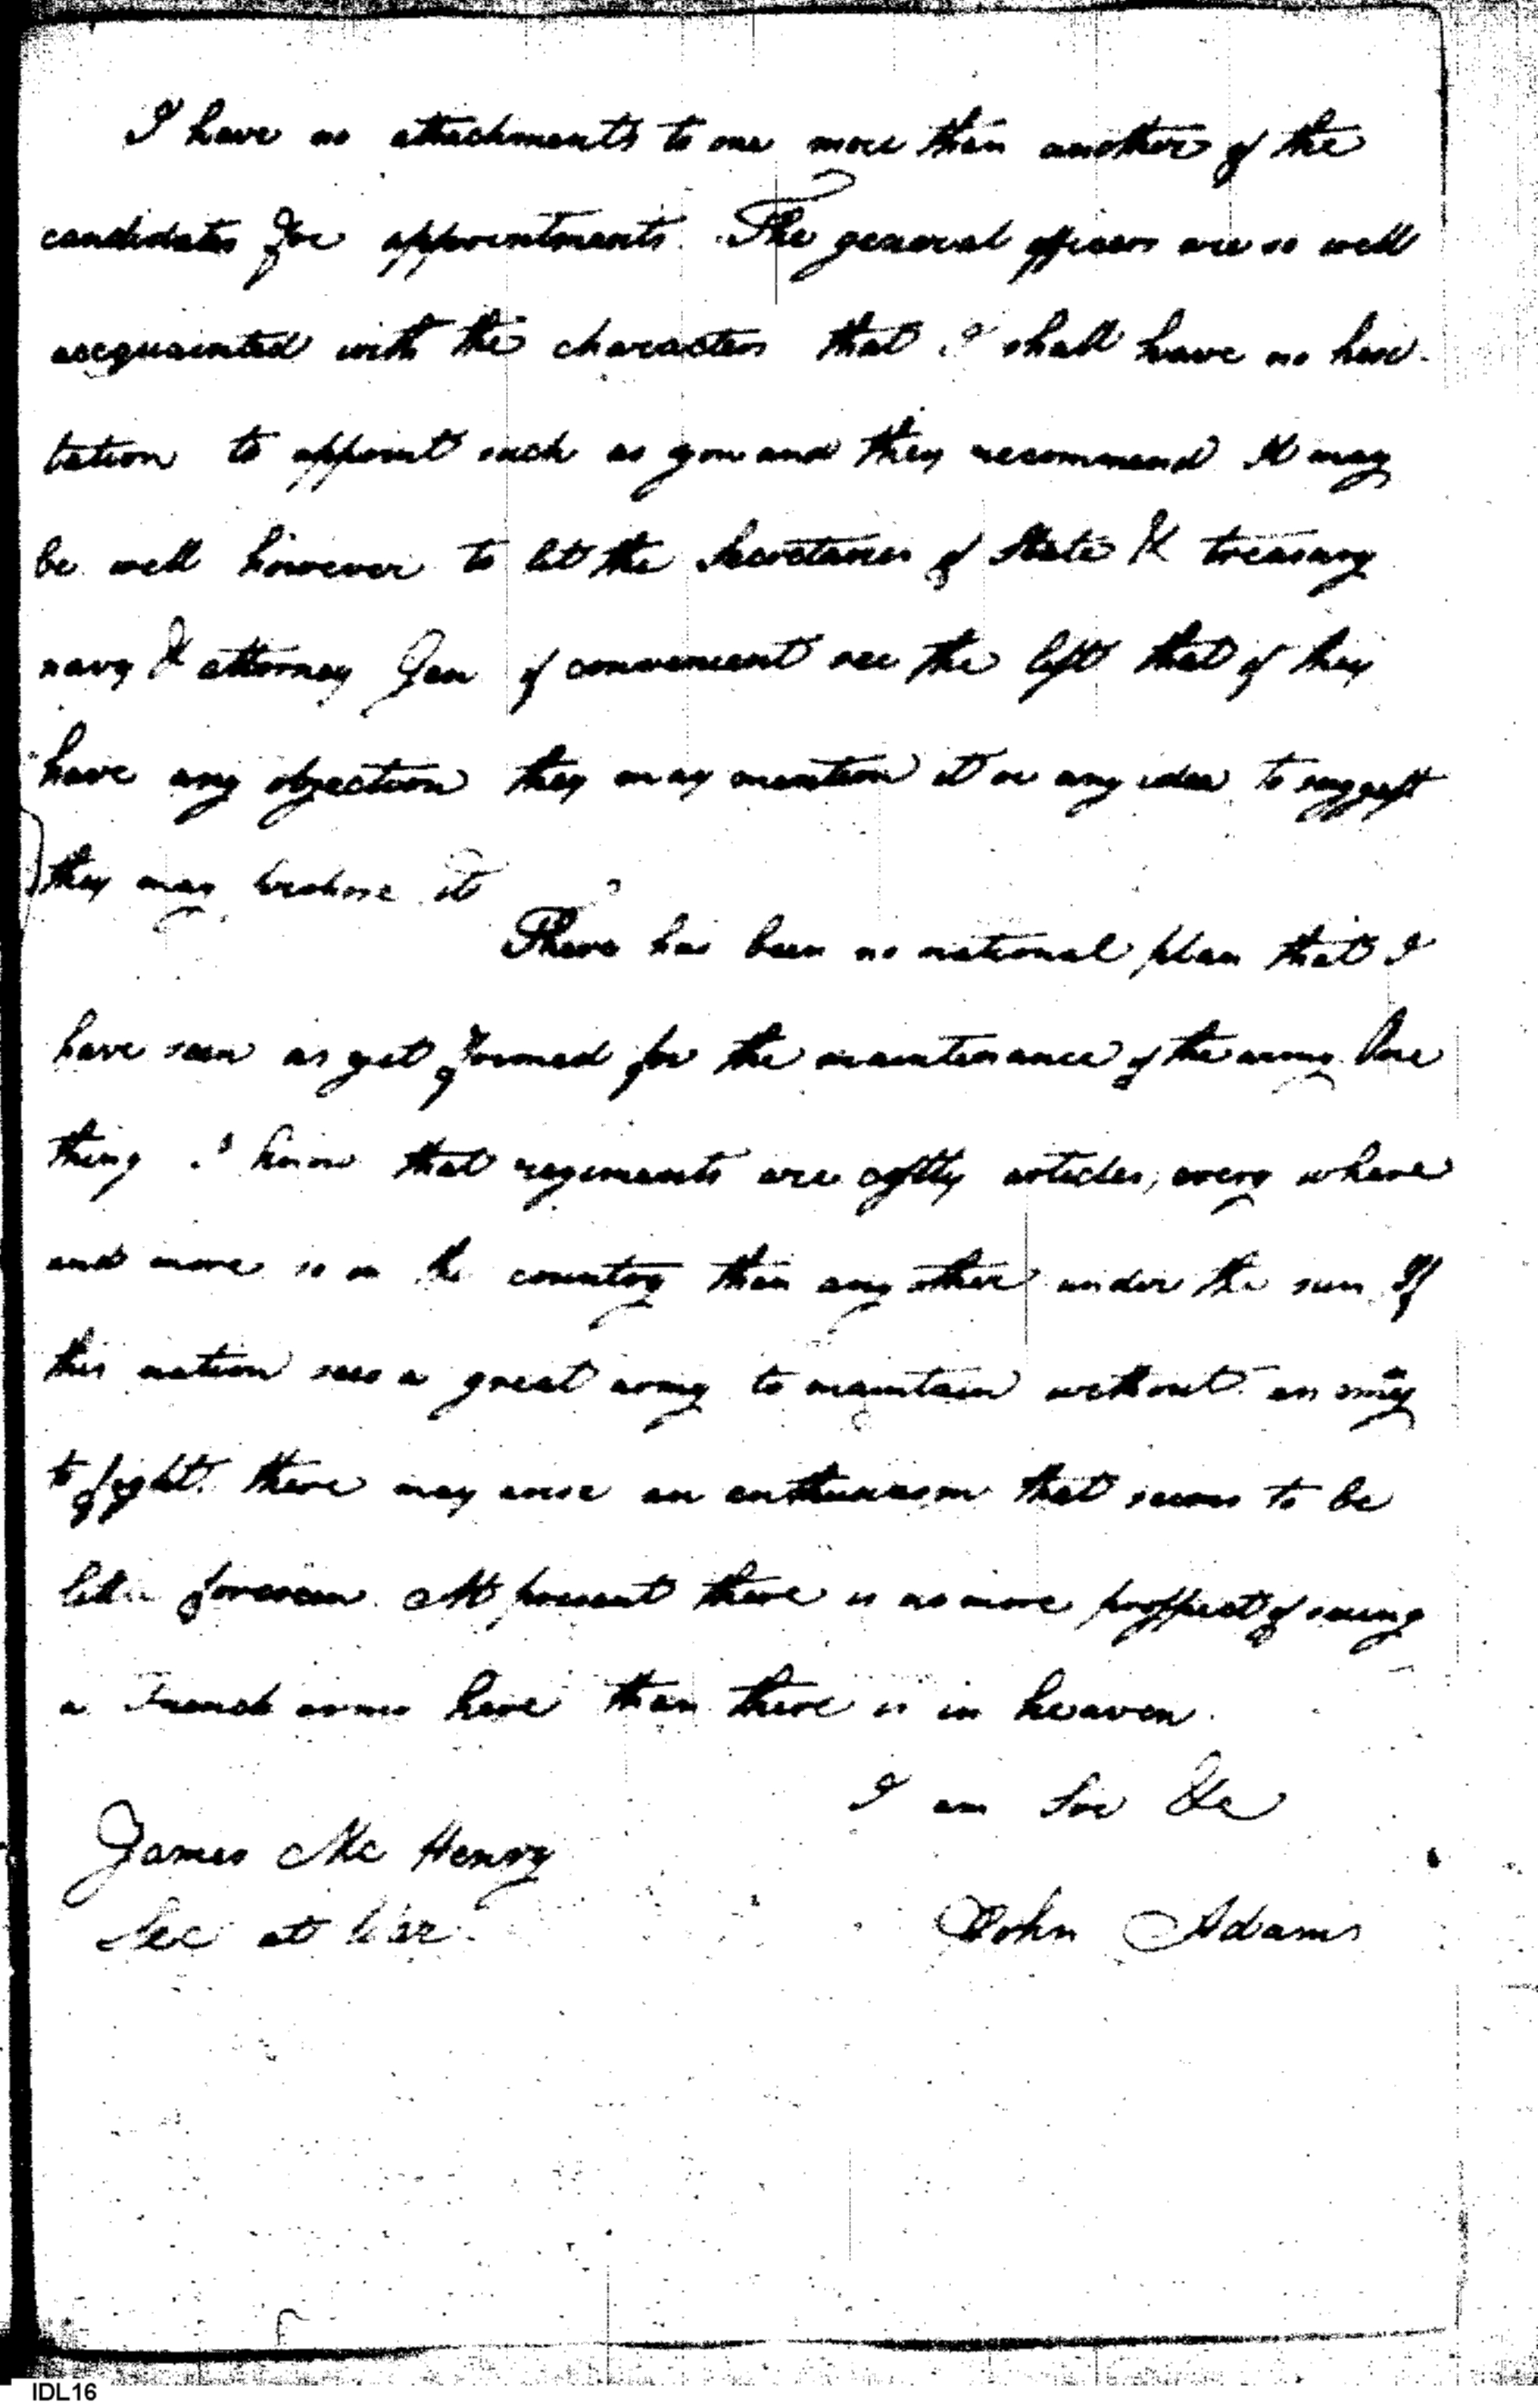 I have no attachments to one more than another of the
candidates for appointments. The general officers are so well
accquainted with the characters that I shall have no hesi-
tation to appoint such as you and they recommend It may
be well however to let the Secretaries of State & treasury
navy & attorney Gen if convenient see the list that if they
have any objection they may mention it or any idea to suggest
they may it
There has been no national plan that I
have seen as yet formed for the maintenance of the army. One
thing I know that regiments are costly articles, every where
and more so in the country than any other under the sun If
this nation sees a great army to maintain without an enemy
to fight. there may arise an enthusiasm that seems to be
little foreseen. At present there is no more prospect of seeing
a French army here than there is in heaven.
I am Sir &c
James Mc Henry
Sec at War.
John Adams
IDL16